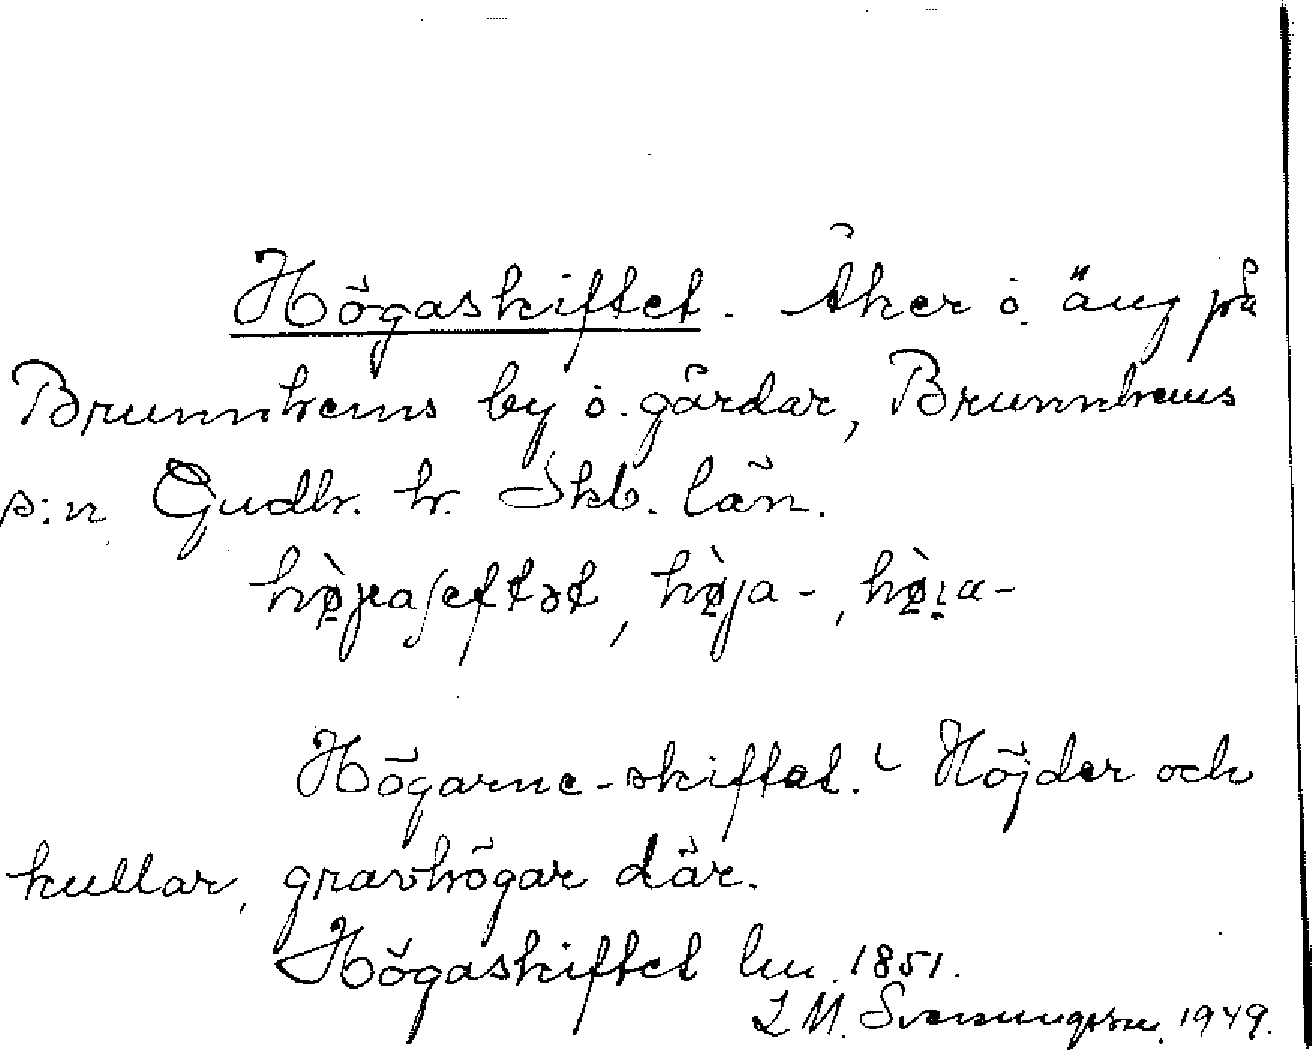 Högaskiftet. Åker o. äng på
Brunnhems by o. gårdar, Brunnhems
s:n Gudh. h. Skb. län.
Högarne-skiftet. Höjder och
kullar, gravhögar där.
Högaskiftet lm. 1851.
L M. Svenungsson. 1949.